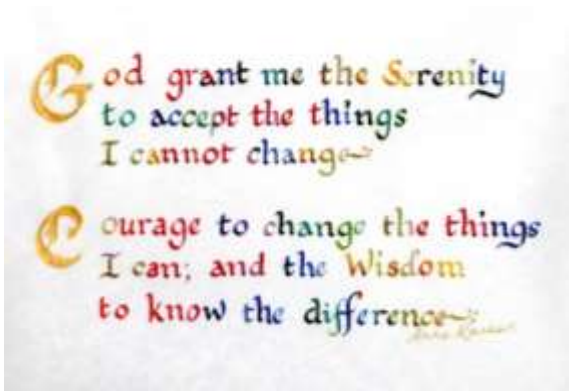 God grant me the Serenity
to accept the things
I cannot change
Courage to change the things
I can; and the Wisdom
to know the difference